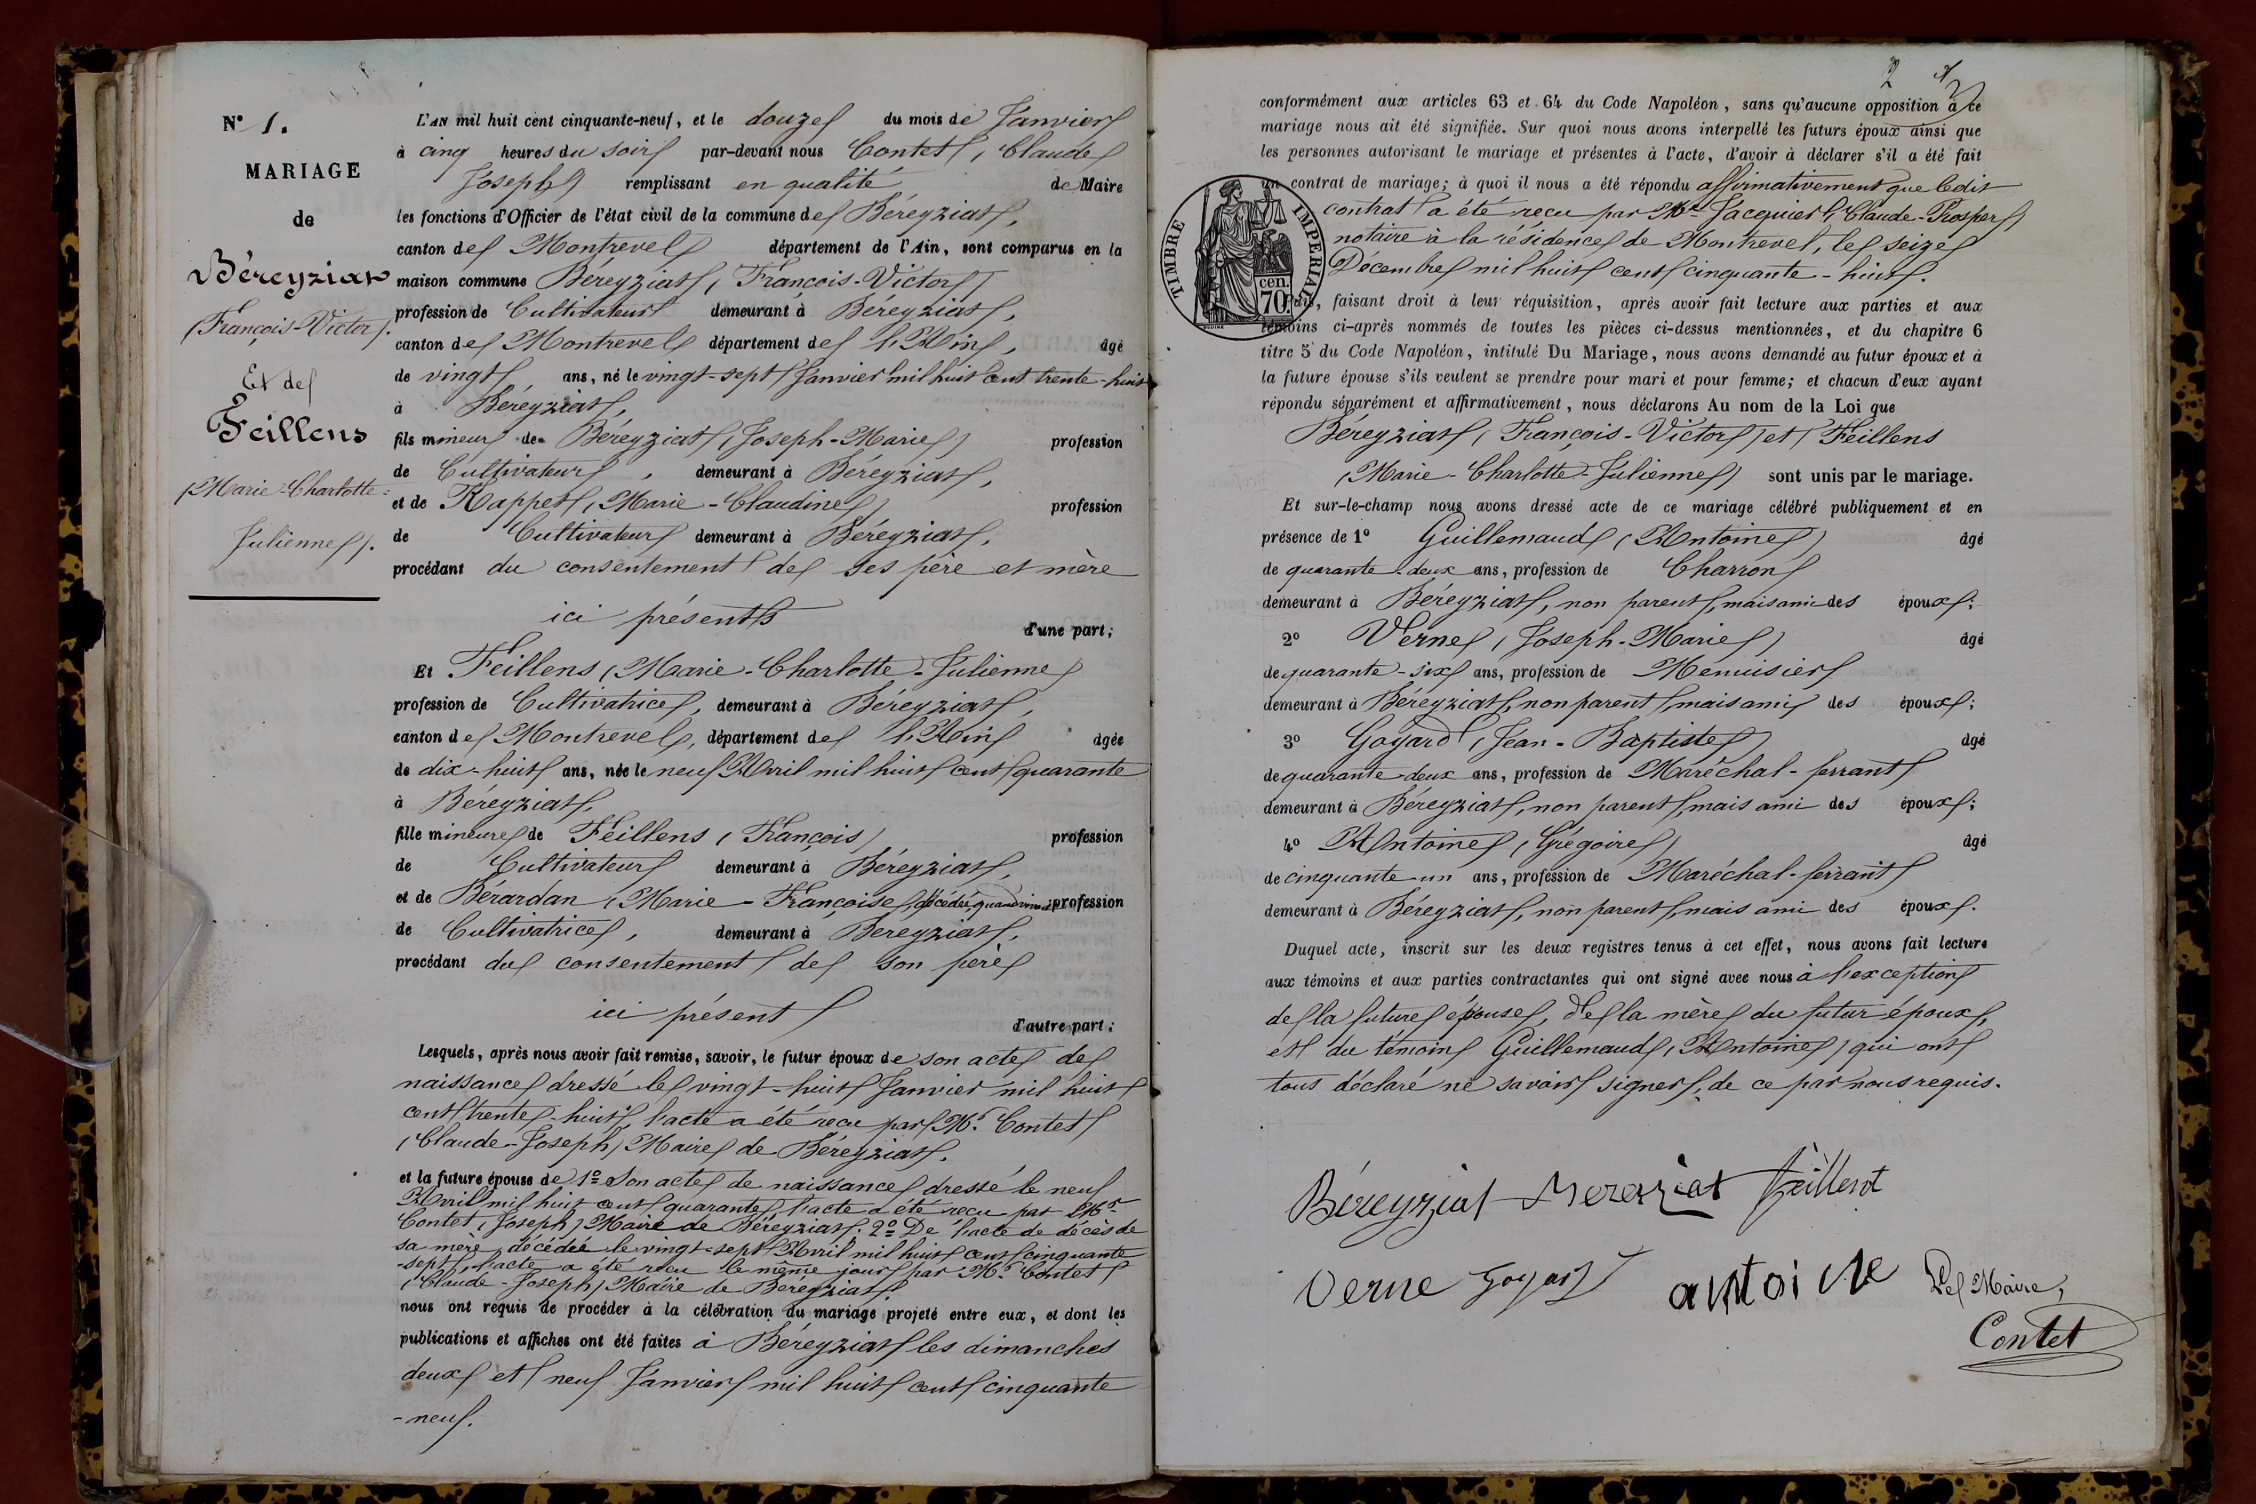 N° 1.
MARIAGE
de
Béreyziat
(François-Victor).
Et de
Feillens
(Marie-Charlotte-
Julienne).
L'AN mil huit cent cinquante-neuf, et le douze du mois de Janvier
à cinq heures du soir par-devant nous Contet, (Claude
Joseph) remplissant en qualité de Maire
les fonctions d'Officier de l'état civil de la commune de Béreyziat,
canton de Montrevel département de l'Ain, sont comparus en la
maison commune Béreyziat, (François-Victor)
profession de Cultivateur demeurant à Béreyziat,
canton de Montrevel département de l'Ain, âgé
de vingt ans, né le vingt-sept Janvier mil huit cent trente-huit
à Béreyziat,
fils mineur de Béreyziat, (Joseph-Marie) profession
de Cultivateur, demeurant à Béreyziat,
et de Rappet, (Marie-Claudine) profession
de Cultivateur demeurant à Béreyziat,
procédant du consentement de ses père et mère
ici présents
d'une part;
Et Feillens (Marie-Charlotte-Julienne
profession de Cultivatrice, demeurant à Béreyziat,
canton de Montrevel, département de l'Ain âgée
de dix-huit ans, née le neuf Avril mil huit cent quarante
à Béreyziat,
fille mineure de Feillens (François) profession
de Cultivateur demeurant à Béreyziat,
et de Bérardan (Marie-Françoise) décédée quand vivait profession
de Cultivatrice, demeurant à Béreyziat,
procédant du consentement de son père
ici présent
d'autre part;
Lesquels, après nous avoir fait remise, savoir, le futur époux de son acte de
naissance dressé le vingt-huit Janvier mil huit
cent trente-huit, l'acte a été reçu par Mr. Contet
(Claude-Joseph) Maire de Béreyziat.
et la future épouse de 1° Son acte de naissance dressé le neuf
Avril mil huit cent quarante, l'acte a été reçu par Mr
Contet, (Joseph) Maire de Béreyziat; 2° De l'acte de décès de
sa mère, décédée le vingt-sept Avril mil huit cent cinquante
-sept, l'acte a été reçu le même jour par Mr. Contet
(Claude-Joseph) Maire de Béréyziat.
nous ont requis de procéder à la célébration du mariage projeté entre eux, et dont les
publications et affiches ont été faites à Béreyziat les dimanches
deux et neuf Janvier mil huit cent cinquante
-neuf.
2
conformément aux articles 63 et 64 du Code Napoléon, sans qu'aucune opposition à ce
mariage nous ait été signifiée. Sur quoi nous avons interpellé les futurs époux ainsi que
les personnes autorisant le mariage et présentes à l'acte, d'avoir à déclarer s'il a été fait
un contrat de mariage; à quoi il nous a été répondu affirmativement que ledit
contrat a été reçu par Me Jacquier (Claude-Prosper)
notaire à la résidence de Montrevel, le seize
Décembre mil huit cent cinquante-huit.
TIMBRE IMPERIAL
cen.
70.
Puis, faisant droit à leur réquisition, après avoir fait lecture aux parties et aux
témoins ci-après nommés de toutes les pièces ci-dessus mentionnées, et du chapitre 6
titre 5 du Code Napoléon, intitulé Du Mariage, nous avons demandé au futur époux et à
la future épouse s'ils veulent se prendre pour mari et pour femme; et chacun d'eux ayant
répondu séparément et affirmativement, nous déclarons Au nom de la Loi que
Béreyziat, (François-Victor) et Feillens
(Marie-Charlotte-Julienne) sont unis par le mariage.
Et sur-le-champ nous avons dressé acte de ce mariage célébré publiquement et en
présence de 1° Guillemaud (Antoine) âgé
de quarante-deux ans, profession de Charron
demeurant à Béreyziat, non parent, mais ami des époux;
2° Verne (Joseph-Marie) âgé
de quarante-six ans, profession de Menuisier
demeurant à Béreyziat, non parent, mais ami des époux;
3° Goyard (Jean-Baptiste) âgé
de quarante deux ans, profession de Maréchal-ferrant
demeurant à Béreyziat, non parent, mais ami des époux;
4° Antoine (Grégoire) âgé
de cinquante-un ans, profession de Maréchal-ferrant
demeurant à Béreyziat, non parent, mais ami des époux.
Duquel acte, inscrit sur les deux registres tenus à cet effet, nous avons fait lecture
aux témoins et aux parties contractantes qui ont signé avec nous à l'exception
de la future épouse, de la mère du futur époux,
et du témoin Guillemaud, (Antoine) qui ont
tous déclaré ne savoir signer, de ce par nous requis.
Béreyziat Berezziat feillent
Verne Goyard antoine Le Maire,
Contet